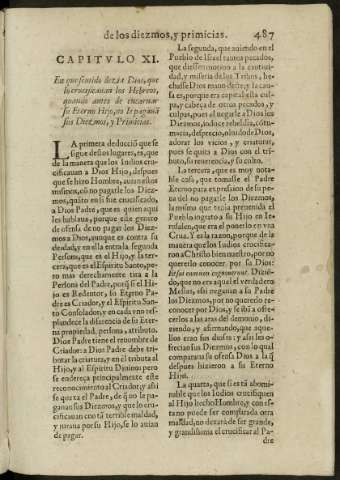 de los diezmos, y primicias. 487
CAPITVLO XI.
En que sentido dezia Dios, que
lo crucificauan los Hebreos,
quando antes de encarnar
su Eterno Hijo, no le pagauã
sus Diezmos, y Primicias.
LA primera deducciõ que se
sigue destos lugares, es, que
de la manera que los Iudios cru-
cificauan a Dios Hijo, despues
que se hizo Hombre, auian ellos
mismos, cõ no pagarles los Diez-
mos, quãto en si fue crucificado,
a Dios Padre, que es quien aqui
les hablaua, porque este genero
de ofensa de no pagar los Diez-
mos a Dios, aunque es contra su
deidad, y en ella entra la segunda
Persona, que es el Hijo, y la ter-
cera, que es el Espiritu Santo, pe-
ro mas derechamente tira a la
Persona del Padre, porq̃ si el Hi-
jo es Redentor, su Eterno Pa-
dre es Criador, y el Espiritu San-
to Consolador, y en cada vno res-
plandece la diferencia de su Eter-
na propiedad, persona, y atributo.
Dios Padre tiene el renombre de
Criador: a Dios Padre debe tri-
butar la criatura, y en el tributa al
Hijo, y al Espiritu Diuino; pero
se endereça principalmente este
reconocimiento al Criador, y assi
se quexa el Padre, de q̃ no le pa-
gauan sus Diezmos, y que lo cru-
cificauan con tã terrible maldad,
y muerte por su Hijo, se lo auian
de pagar.
La segunda, que auiendo en el
Pueblo de Israel tantos pecados,
que diessen motiuo a la cautiui-
dad, y miseria de los Tribus, he-
chasse Dios mano deste, y la cau-
sa es, porque era capital esta cul-
pa, y cabeça de otros pecados, y
culpas, pues el negarle a Dios los
Diezmos, induce rebeldia, cōtu-
macia, desprecio, olvido de Dios,
adorar los vicios, y criaturas,
pues se quita a Dios con el tri-
buto, su reuerencia, y su culto.
La tercera, que es muy nota-
ble cosa, que tomasse el Padre
Eterno para expression de su pe-
na del no pagarle los Diezmos, la
misma que tenia preuenida el
Pueblo ingrato a su Hijo en Ie-
rusalen, que era el ponerlo en vna
Cruz. Y es la razon, porque de la
manera que los Iudios crucifica-
ron a Christo bien nuestro, por no
quererlo conocer por su Dios:
Iesus non cognouerunt. Dizié-
do, que no era aquel el verdadero
Messias, assi negauan a su Padre
los Diezmos, por no quererlo re-
conocer por Dios, y se ibã a ofre-
cerlos a las aras del demonio, di-
ziendo, y afirmando, que aque-
llos eran sus diosses: y assi los o-
frecian sus Diezmos, con lo qual
comparaua su ofensa Dios a la q̃
despues hizieron a su Eterno
Hijo.
La quarta, que si es tã abomi-
nable que los Iudios crucifiquen
al Hijo hecho Hombre, y con es-
to no puede ser comparada otra
maldad, no dexarà de ser grande,
y grandissima el crucificar al Pa-
dre